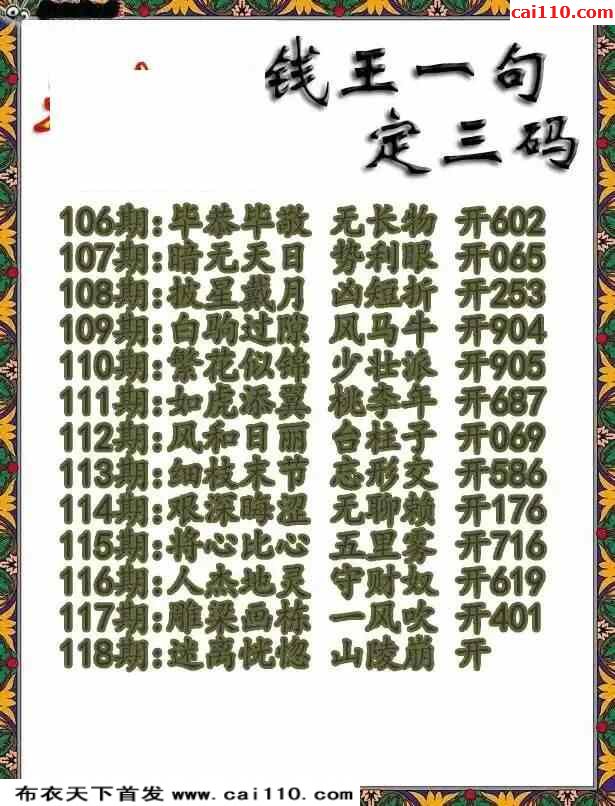 cai110.com
钱王一句
定三码
106期:毕恭毕敬 无长物 开602
107期:暗无天日 势利眼 开065
108期:披星戴月 凶短折 开253
109期:白驹过隙 风马牛 开904
110期:繁花似锦 少壮派 开905
111期:如虎添翼 桃李年 开687
112期:风和日丽 台柱子 开069
113期:细枝末节 忘形交 开586
114期:艰深晦涩 无聊赖 开176
115期:将心比心 五里雾 开716
116期:人杰地灵 守财奴 开619
117期:雕梁画栋 一风吹 开401
118期:迷离恍惚 山陵崩 开
布衣天下首发 www.cai110.com